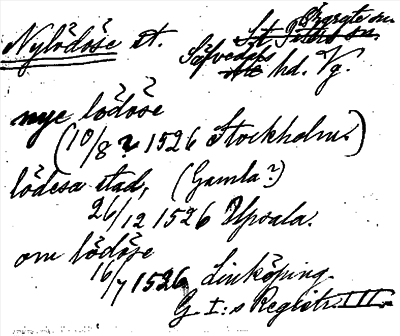 Örgryte sn.
Nylödöse st. St. Peters sn.
Säfvedals hd. Vg.
nye lödöse
(10/8 ? 1526 Stockholm.)
lödesa stad, (Gamla?)
26/12 1526 Upsala.
om lödöse
16/7 1526 Linköping.
G. I:s Registr. III.